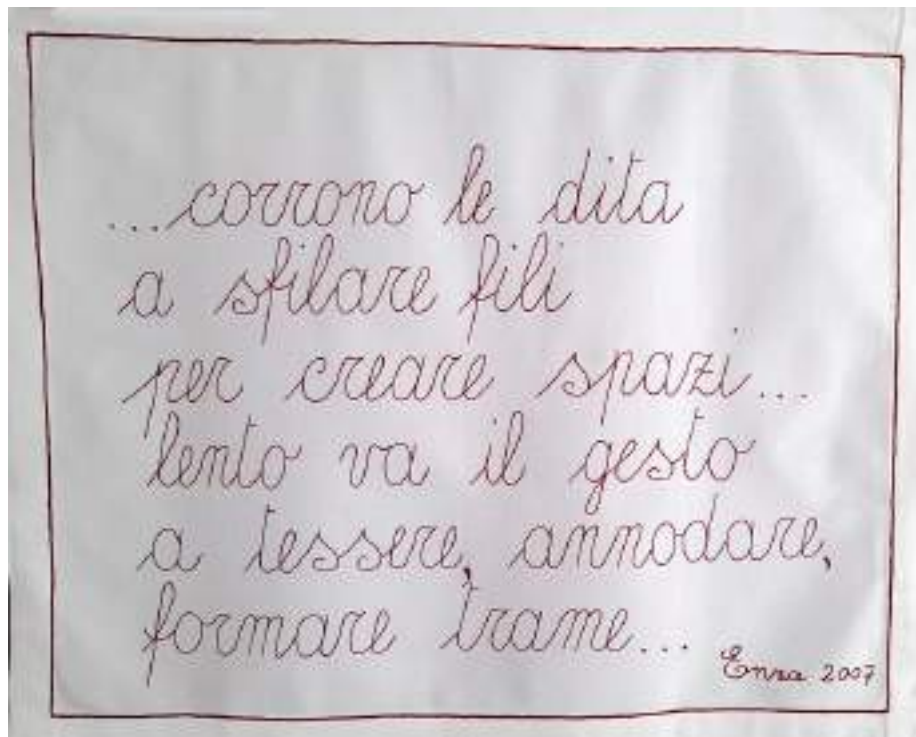 ...corrono le dita
a sfilare fili
per creare spazi...
lento va il gesto
a tessere, annodare,
formare trame...
Enza 2007